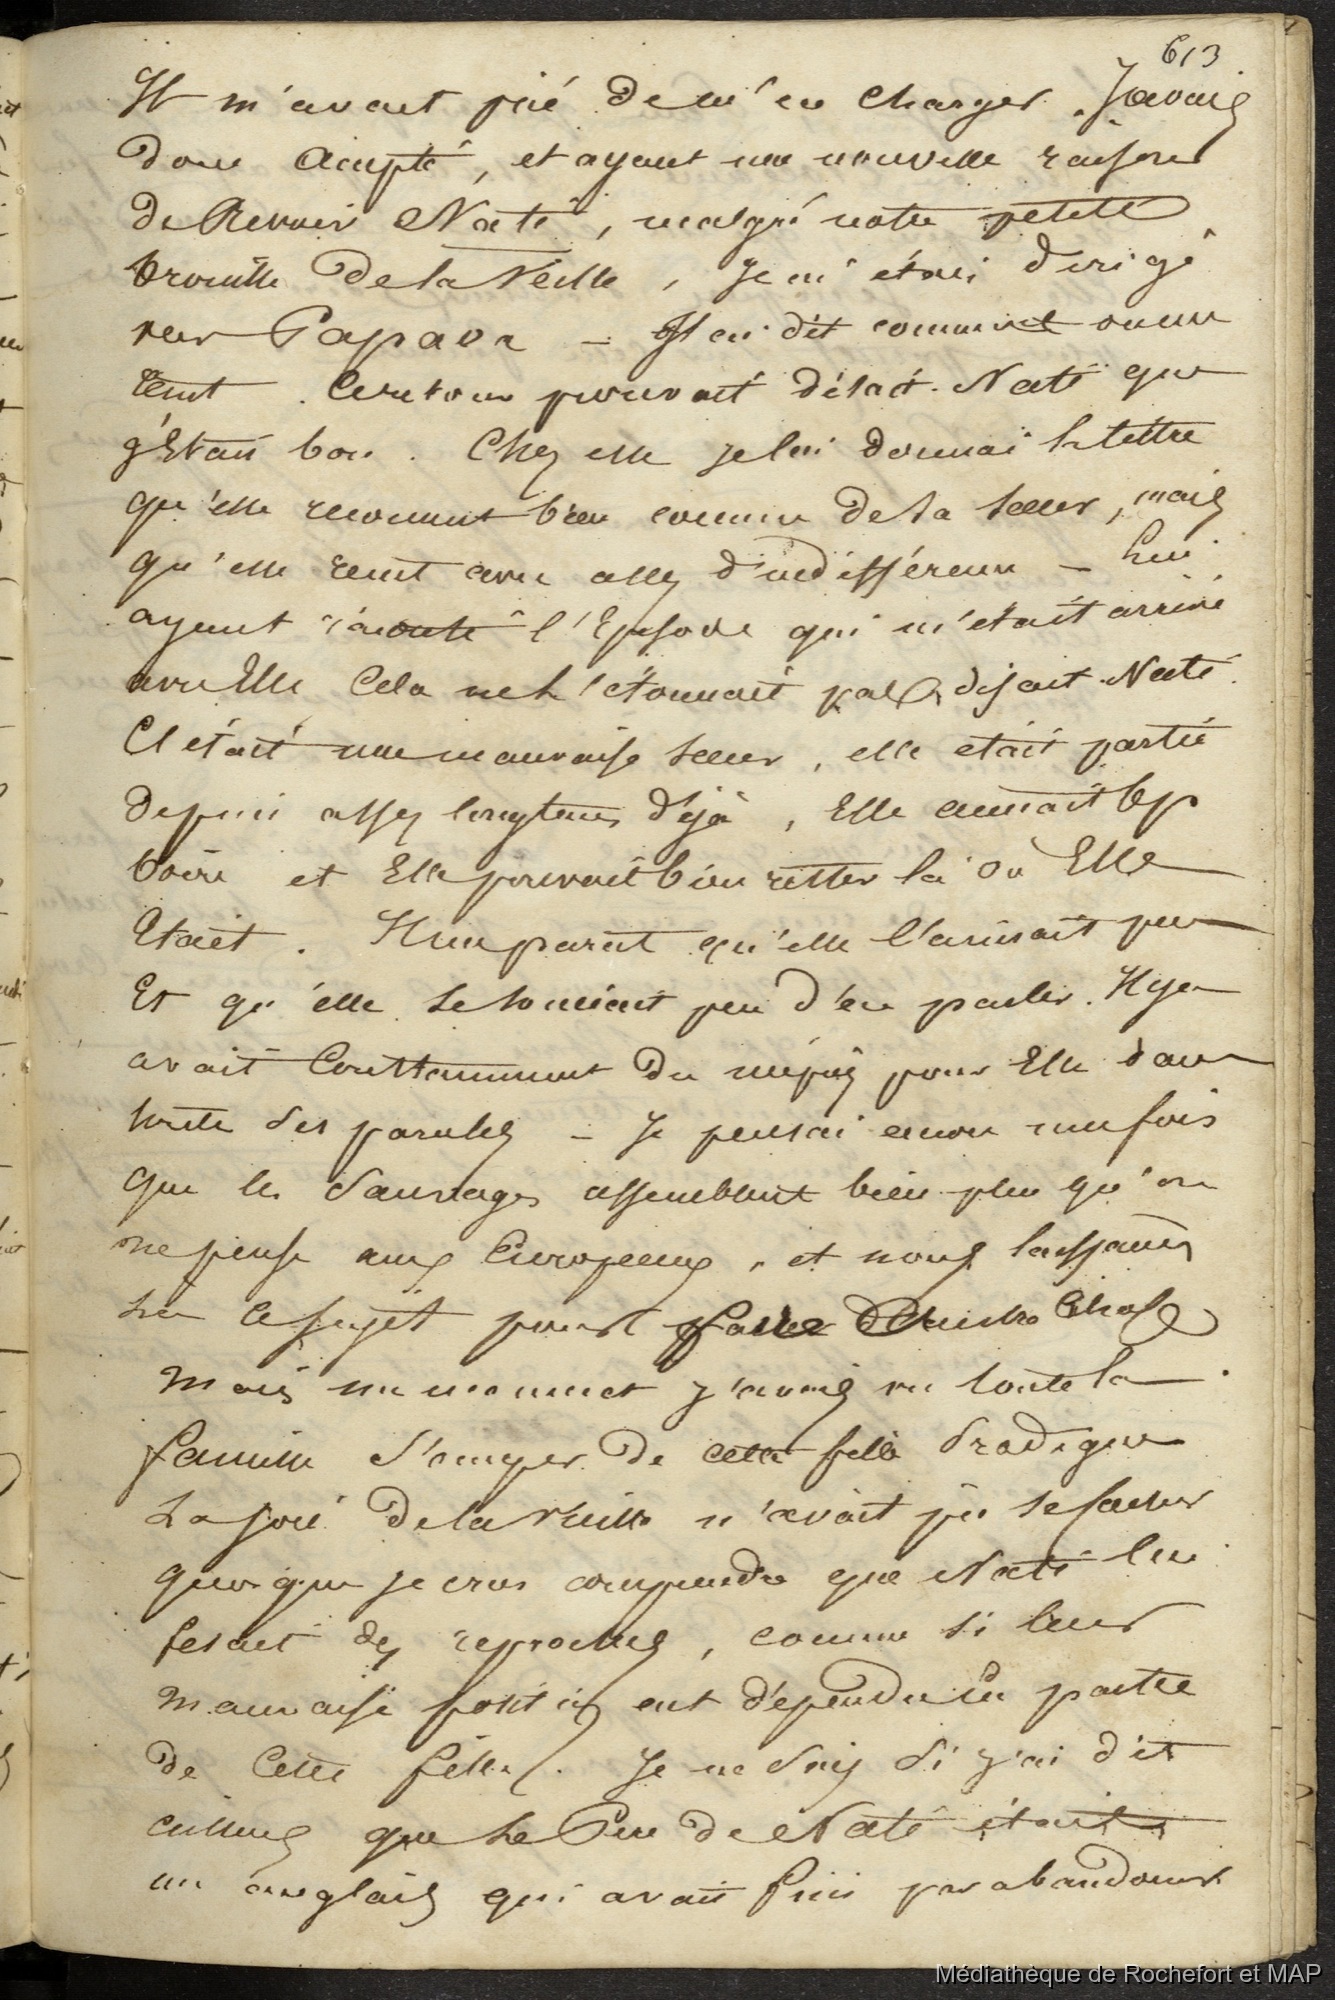 613
Il m'avait prié de m'en charger. J'avais
donc accepté, et ayant une nouvelle raison
de Revoir Naté, malgré notre petite
brouille de la Veille, je m'étais dirigé
vers Papava – Il m dit comme
tout pouvait Naté que
j'Etais bon. Chez elle je lui donnai la lettre
qu'elle reconnut bien comme de sa soeur, mais
qu'elle recut avec assez d'indifférence – Lui
ayant raconté l'Episode qui m'était arrivé
avec Elle Cela ne l'étonnait pas, disait Naté.
C'était une mauvaise soeur, elle était partie
depuis assez longtems déjà, Elle aimait bp
boire et Elle pouvait bien rester là où Elle
Etait. Il me parut qu'elle l'aimait peu
Et qu'elle se souciait peu d'en parler. Il y en
avait Constamment du mépris pour Elle dans
toute ses paroles – Je pensai encore une fois
que les Sauvages assemblent bien plus qu'on
ne pense aux Européens, et nous laissames
la ce sujet pour faire Autre Chose
Mais un moment j'avais vu toute la
famille s'occuper de cette fille Prodigue
La joie de la Veille n'avait pu se facher
quoique je crus comprendre que Naté lui
fesait des reproches, comme si leur
mauvaise position eut dépendu en partie
de Cette fille. Je ne sais si j'ai dit
ailleurs que le Père de Naté était
un anglais qui avait fini par abandonner
Médiathèque de Rochefort et MAP